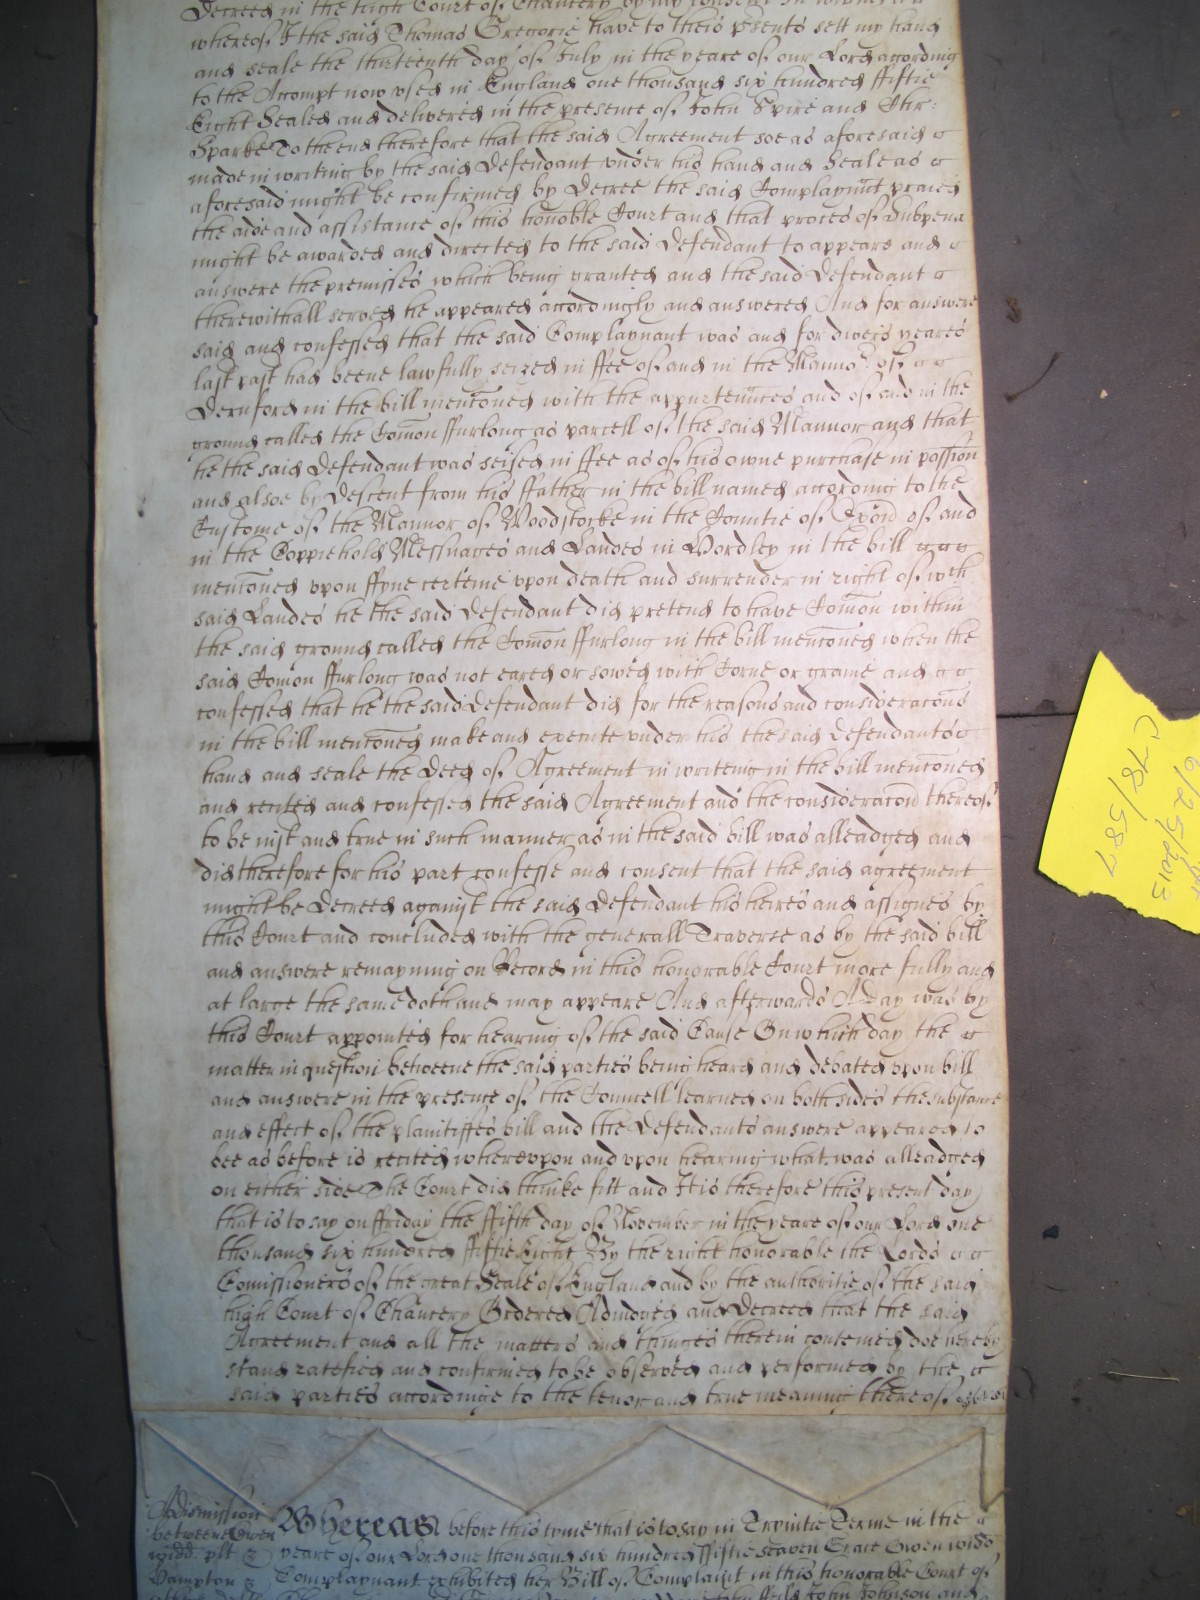 Decreed in the high Court of Chancery by my consent In witnes
whereof I the said Thomas Gregorie have to theis p̃sents sett my hand
and seale the thirteenth day of July in the yeare of our Lord according
to the Accompt now vsed in England one thousand six hundred fiftie
Eight Sealed and delivered in the presence of John Spire and Chr:
Sparke To the end therefore that the said Agreement soe as aforesaid
made in writing by the said Defendant vnder his hand and Seale as
aforesaid might be confirmed by Decree the said Complaynnt praied
the aide and assistance of this honoble Court and that proces of Subpena
might be awarded and directed to the said Defendant to appeare and
answere the premisses which being granted and the said Defendant
therewithall served he appeared accordingly and answered And for answere
said and confessed that the said Complaynant was and for divers yeares
last past had beene lawfully seized in ffee of and in the Manno.r of
Dernford in the bill menc̃oned with the appurten̄nces and of and in the
ground called the Com̃on ffurlong as parcell of the said Mannor and that
he the said Defendant was seised in ffee as of his owne purchase in possion
and alsoe by Descent from his ffather in the bill named according to the
Custome of the Mannor of Woodstocke in the Countie of Oxon̄ of and
in the Coppiehold Messuages and Landes in Wordley in the bill
menc̃oned vpon ffyne certeine vpon death and surrender in right of wch
said Landes he the said Defendant did pretend to have Com̃on within
the said ground called the Com̃on ffurlong in the bill menc̃oned when the
said Com̃on ffurlong was not eared or sowed with Corne or graine and
confessed that he the said Defendant did for the reasons and considerac̃ons
in the bill menc̃oned make and execute vnder his the said Defendants
hand and seale the Deed of Agreement in writeing in the bill menc̃oned
and recited and confessed the said Agreement and the considerac̃on thereof
to be iust and true in such manner as in the said bill was alleadged and
did therefore for his part confesse and consent that the said agreement
might be Decreed against the said Defendant his heires and assignes by
this Court and concluded with the generall Traverse as by the said bill
and answere remayning on Record in this honorable Court more fully and
at large the same doth and may appeare And afterwards A Day was by
this Court appointed for hearing of the said Cause On which day the
matter in question betweene the said parties being heard and debated vpon bill
and answere in the presence of the Councell learned on both sides the substance
and effect of the plaintiffes bill and the Defendants answere appeared to
bee as before is recited wherevpon and vpon hearing what was alleadged
on either side The Court did thinke fitt and It is therefore this present day
that is to say on ffriday the ffifth day of November in the yeare of our Lord one
thousand six hundred ffiftie Eight By the right honorable the Lords
Com̃issioners of the great Seale of England and by the authoritie of the said
high Court of Chancery Ordered Adiudged and Decreed that the said
Agreement and all the matters and thinges therein conteined doe hereby
stand ratefied and confirmed to be observed and performed by the
said parties accordinge to the tenor and true meaning thereof
A Dismission
betweene Owen
widd plt
Bampton
Whereas before this tyme that is to say in Trynitie Terme in the
yeare of our Lord one thousand six hundred ffiftie seaven Grace Owen widd
Complaynant exhibited her Bill of Complaint in this honorable Court of
John Johnson and
C78/587
6/25/2013